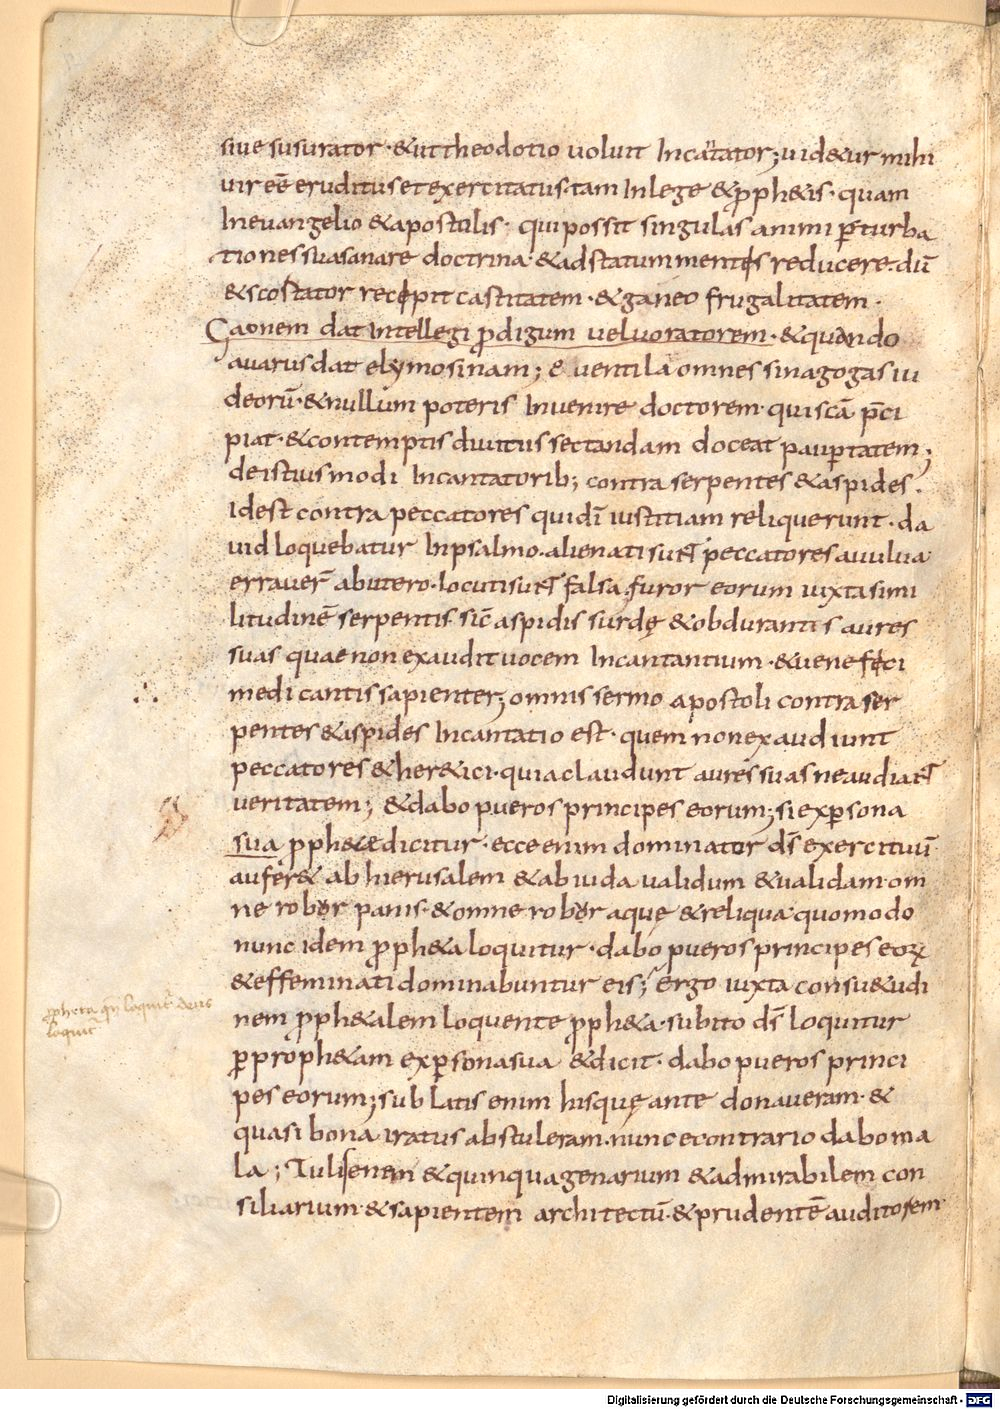 siue susurator · & ut theodotio uoluit Incantator; uid&ur mihi
uir eē eruditus et exercitatus · tam In lege & ꝓph&is · quam
In euangelio & apostolis · qui possit singulas animi ꝑturba
tiones sua sanare doctrina · & ad statum mentis reducere · dū
& scortator recepit castitatem · & ganeo frugalitatem ·
Ganeonem dat Intellegi ꝓdigum uel uoratorem · & quando
auarus dat elymosinam; & uentila omnes sinagogas iu
deorū · & nullum poteris Inuenire doctorem · qui scā p̄ci
piat · & contemptis diuitiis sectandam doceat pauꝑtatem;
de istius modi Incantatorib; contra serpentes & aspides ·
Id est contra peccatores qui dn̄i iustitiam reliquerunt · da
uid loquebatur In psalmo · alienati sunt peccatores a uulua
errauer̄ ab utero · locuti sunt falsa · furor eorum iuxta simi
litudinē serpentis · sic̄ aspidis surdę & obdurantis aures
suas quae non exaudit uocem Incantantium · & uenefici
medicantis sapienter; omnis sermo apostoli contra ser
pentes & ispides Incantatio est · quem non exaudiunt
peccatores & her&ici · quia claudunt aures suas ne audiant
ueritatem; & dabo pueros principes eorum; si ex ꝑsona
sua ꝓph&ae dicitur · ecce enim dominator dn̄s exercituū
aufer& ab hierusalem & ab iuda ualidum & ualidam · om
ne robor panis · & omne robor aquę & reliqua · quomodo
nunc idem ꝓph&a loquitur · dabo pueros principes eoꝝ
& effeminati dominabuntur eis; Ergo iuxta consu&udi
nem ꝓph&alem loquente ꝓph&a · subito dn̄s loquitur
ꝑ proph&am ex ꝑsona sua & dicit · dabo pueros princi
pes eorum; sublatis enim hisquę ante donaueram · &
quasi bona iratus abstuleram · nunc e contrario dabo ma
la; Tuli senem & quinquagenarium & admirabilem con
siliarium · & sapientem architectū · & prudentē auditorem
ꝓpheta qn̄ loquit deus
loquit
Digitalisierung gefördert durch die Deutsche Forschungsgemeinschaft - DFG